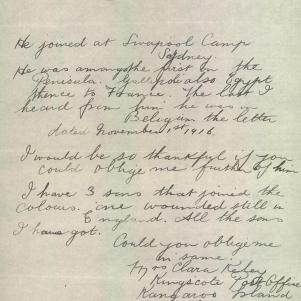 He joined at Liverpool Camp
Sydney.
He was among the first in the
Peninsula. Gallipoli also Egypt
thence to France. The last I
heard from him he was in
Belgium the letter
dated November 1st 1916.
I would be so thankful if you
could oblige me further of him
I have 3 sons that joined the
colours. one wounded still in
England. All the sons
I have got.
Could you oblige me
in same.
Mrs Clara
Kingscote Post Office
Kangaroo Island